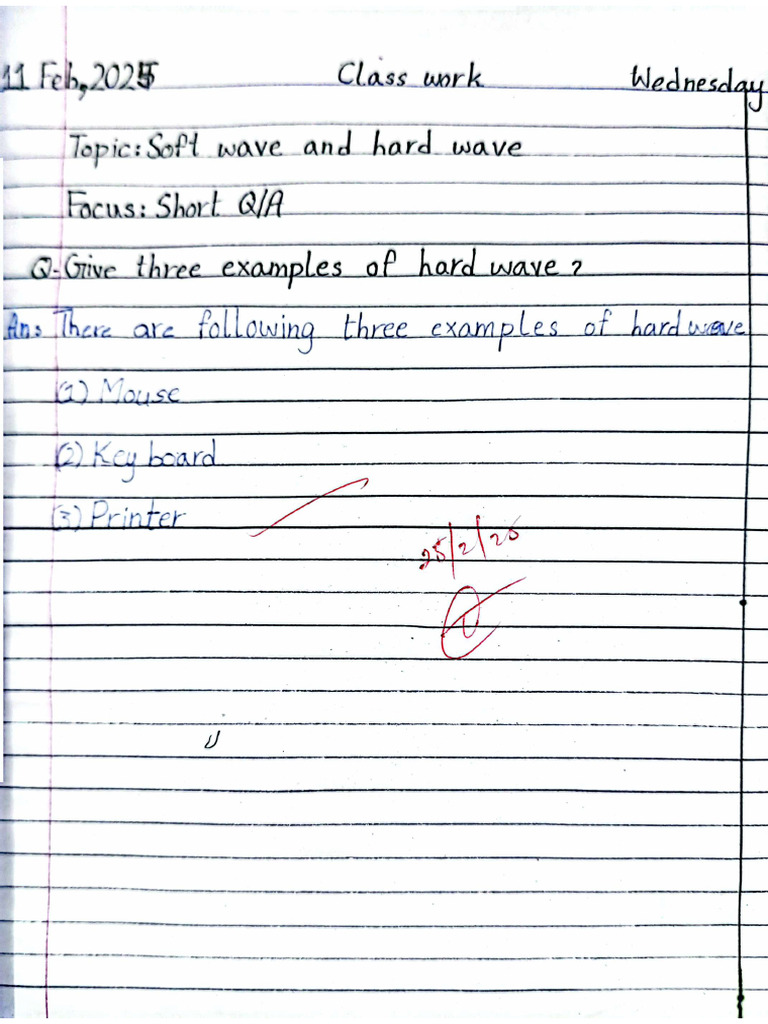 11 Feb, 2025 Class work Wednesday
Topic: Soft wave and hard wave
Focus: Short Q/A
Q- Give three examples of hard wave?
Ans There are following three examples of hard wave
(1) Mouse
(2) Key board
(3) Printer
25/2/25